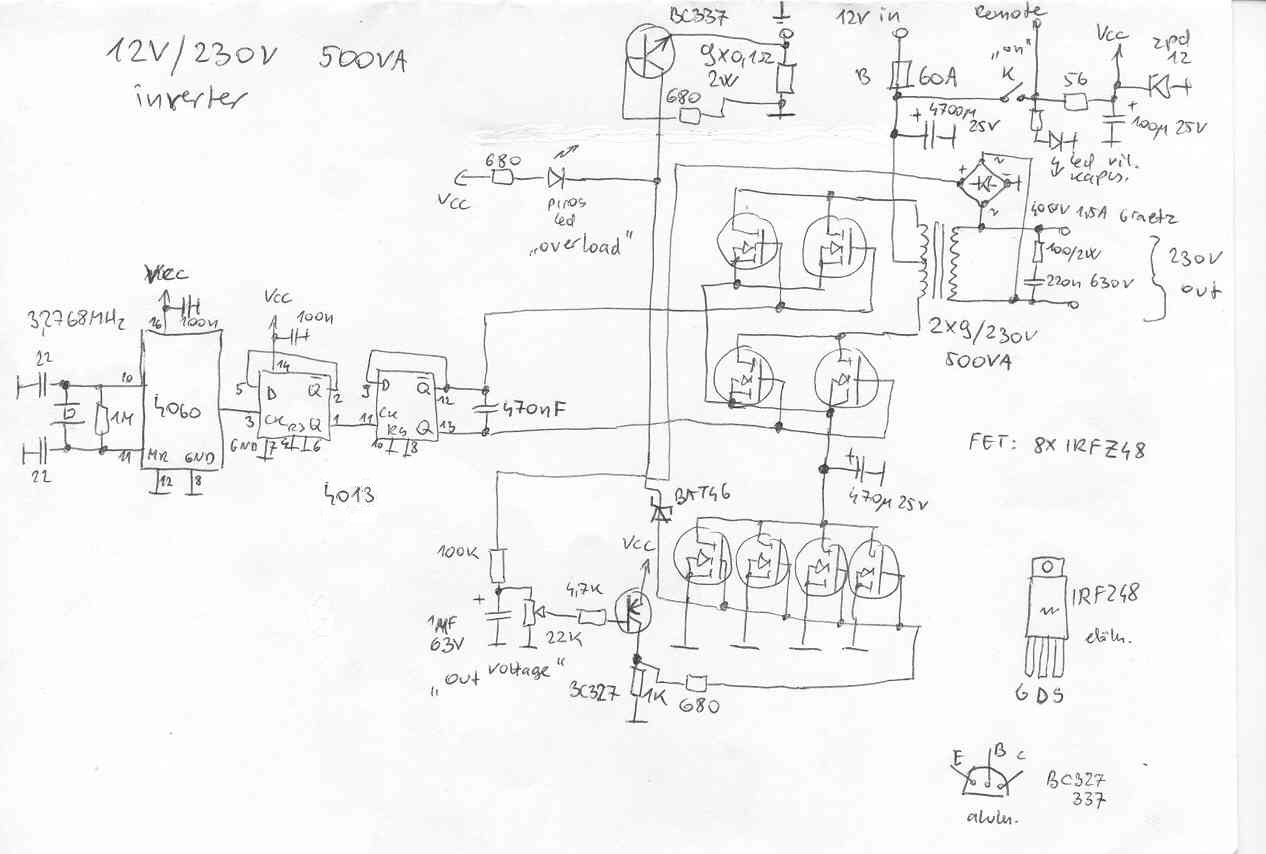 12V/230V 500VA
inverter
BC337
9x0,1Ω
2W
680
12V in
B
60A
4700µ
25V
+
Remote
"on"
K
56
Vcc
zpd
12
+
100µ 25V
led vil.
kapcs.
680
Vcc
piros
led
„overload"
+
~
~
400V 1,5A Graetz
100/2W
220n 630V
230V
out
2x9/230V
500VA
3,2768MHz
22
22
1M
Vcc
16
100n
10
11
4060
MR
GND
12
8
Vcc
100n
14
5
D
Q
2
3
CK
RS
Q
1
GND
7
4
6
4013
9
D
Q
12
11
CK
RS
Q
13
10
8
470nF
FET: 8x IRFZ48
+
470µ 25V
BAT46
Vcc
100K
+
1µF
63V
4,7K
22K
„out voltage"
BC327
1K
680
IRFZ48
elöln.
G D S
E
B
C
BC327
337
aluln.